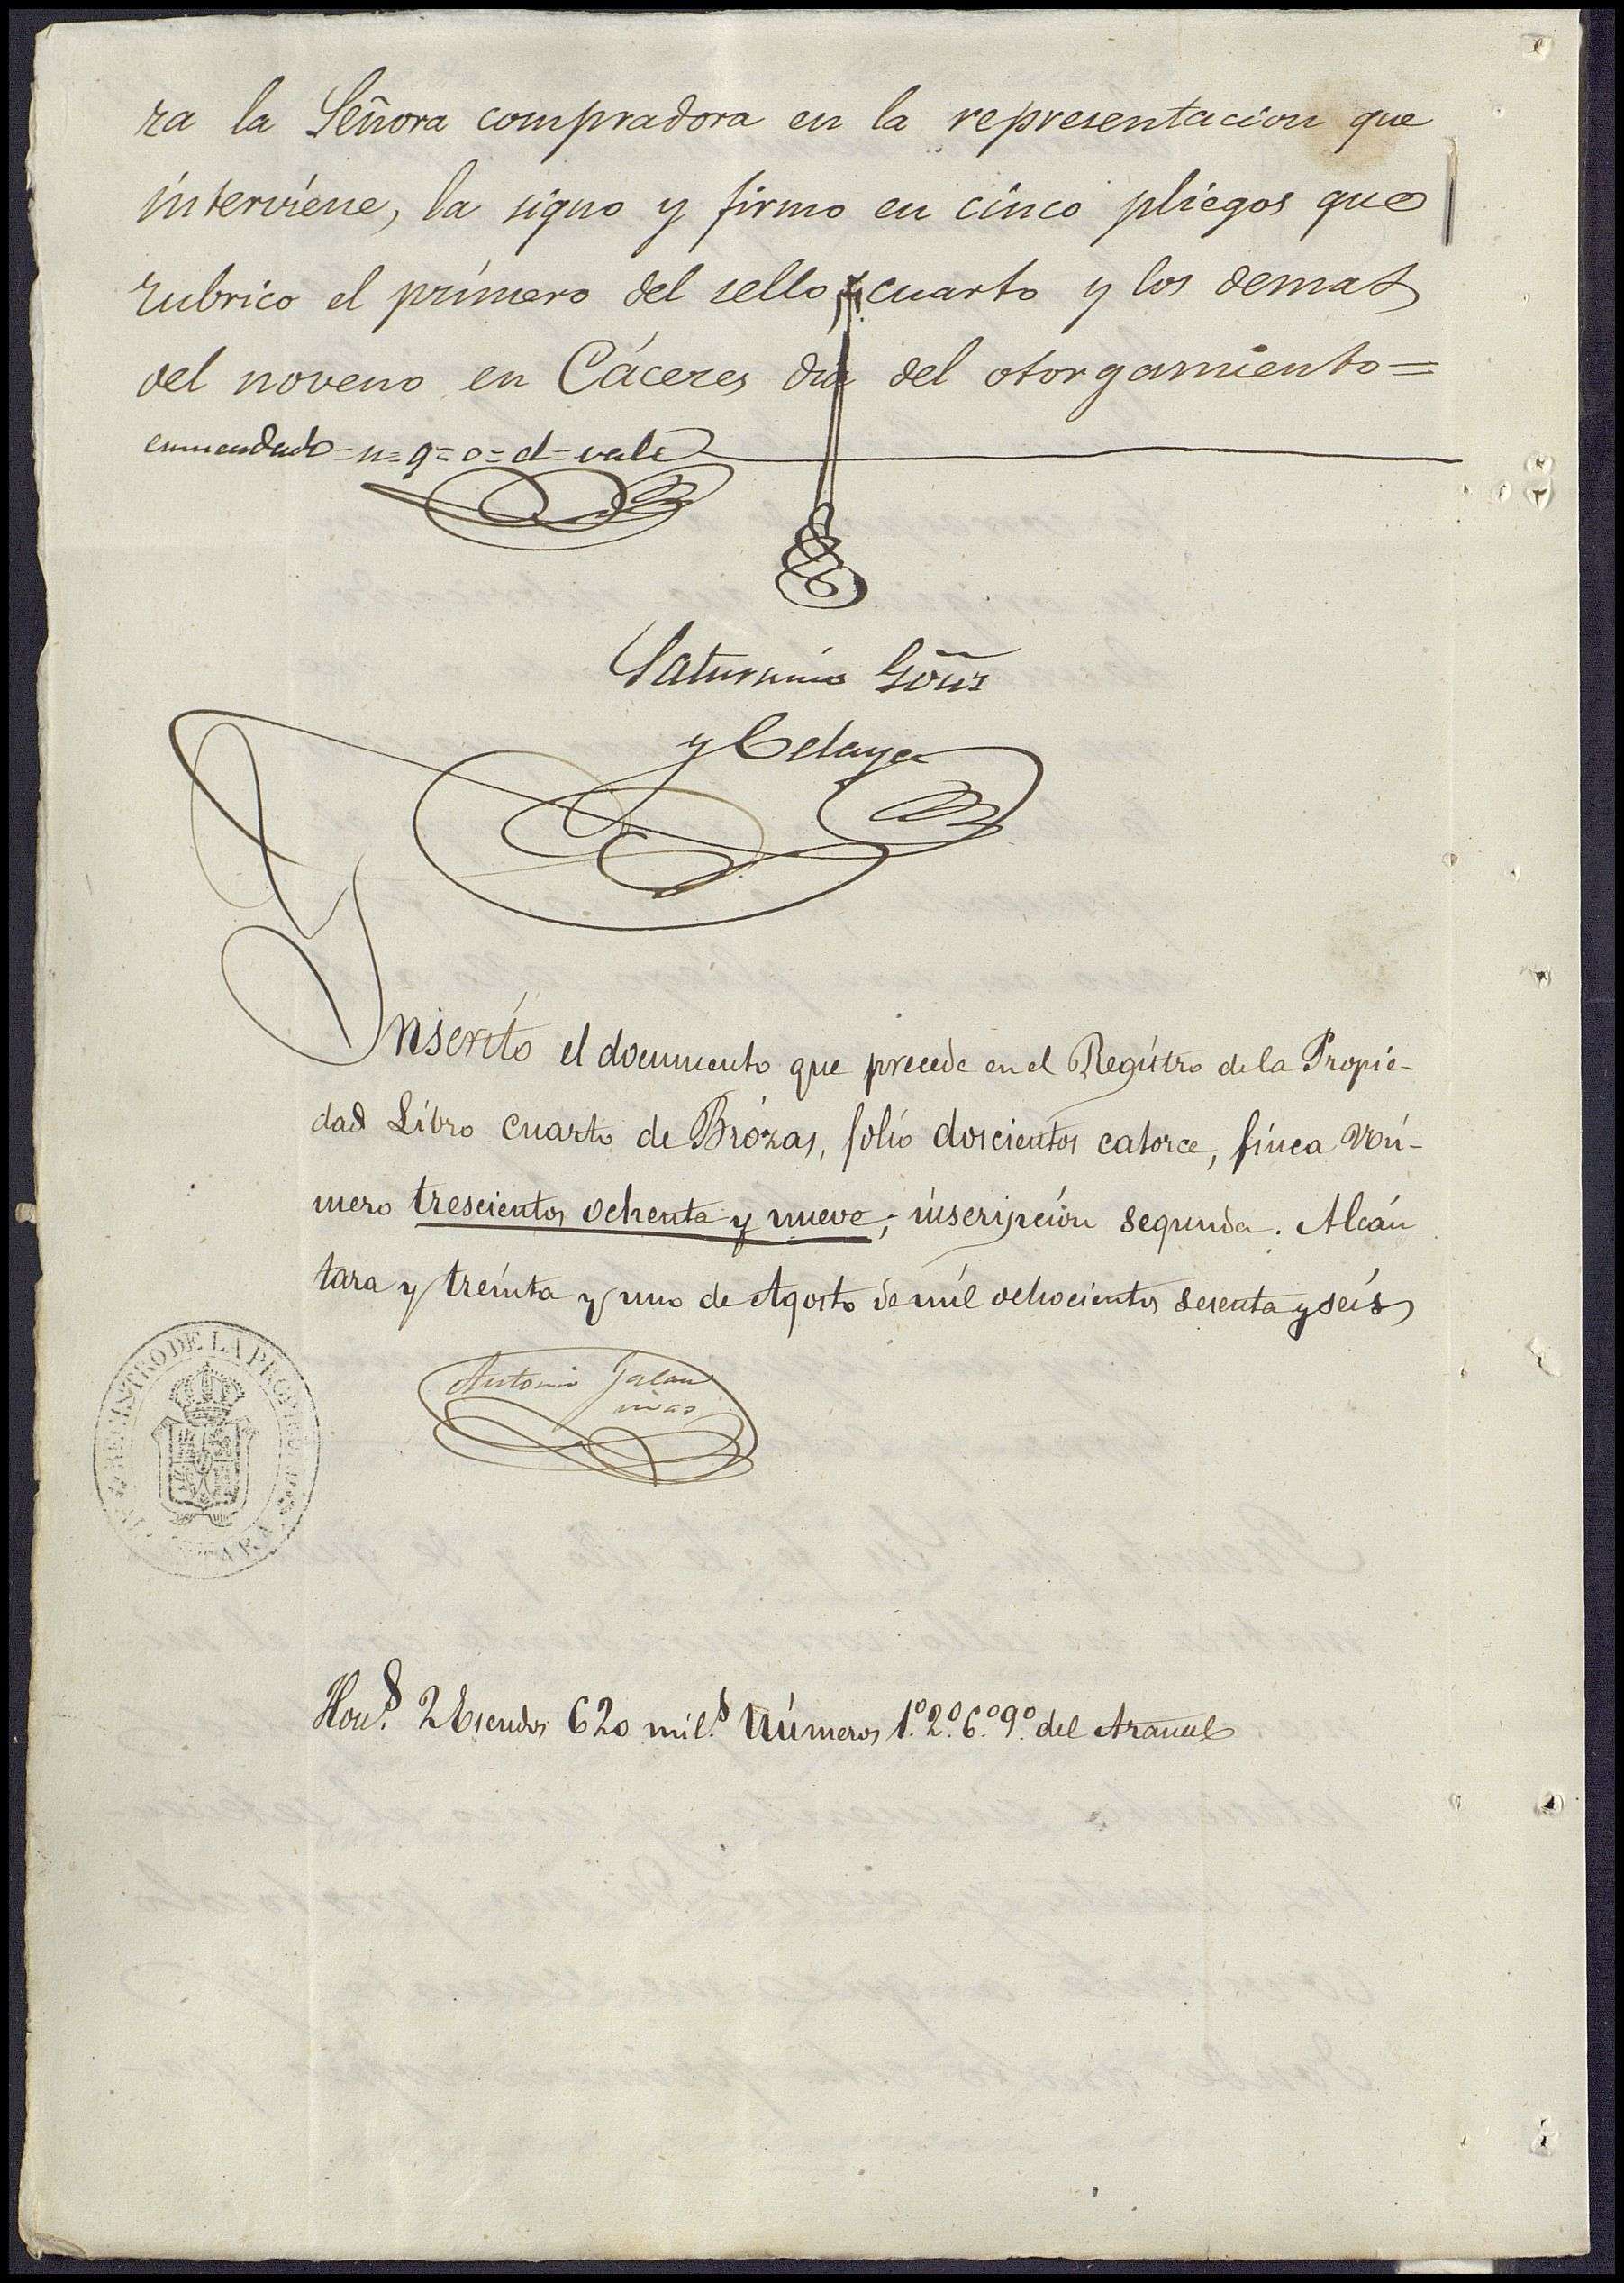 ra la Señora compradora en la representacion que
interviene, la signo y firmo en cinco pliegos que
rubrico el primero del sello cuarto y los demas
del noveno en Cáceres dia del otorgamiento=
enmendado=n=q=o=d=vale
Saturnino
y Celaya
Inscrito el documento que precede en el Registro de la Propie-
dad Libro cuarto de Brozas, folio doscientos catorce, finca Nú-
mero trescientos ochenta y nueve, inscripción segunda. Alcán
tara y treinta y uno de Agosto de mil ochocientos sesenta y seis
Antonio
REGISTRO DE LA PROPIEDAD
Hon.s 2 Escudos 620 mil.s Números 1.º 2.º 6.º 9.º del Arancel